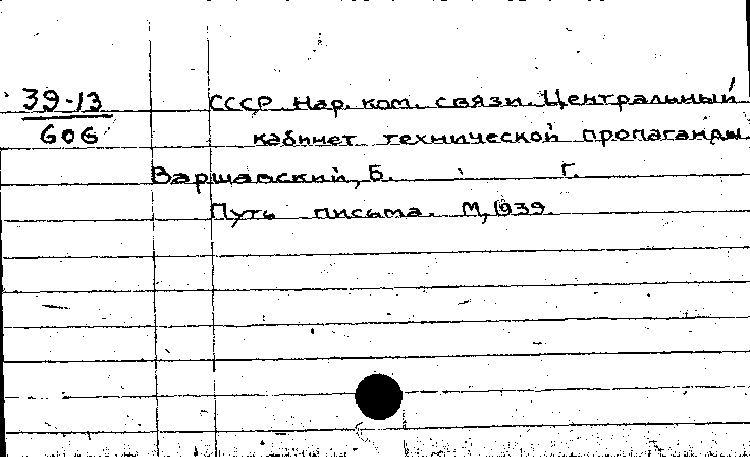 39-13 СССР Нар. ком. связи. Центральный
606 кабинет технической пропаганды.
Варшавский, Б. г.
Путь письма. М, 1939.